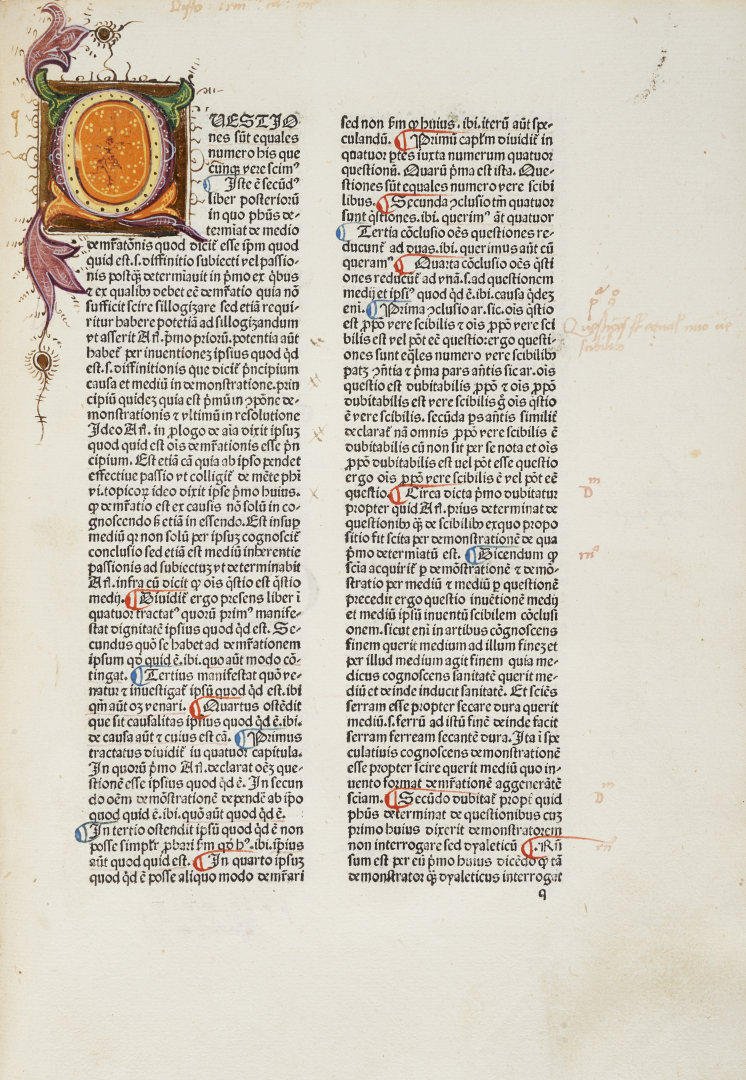 VESTIO
nes sūt equales
numero his que
cūnqꝫ vere scimꝰ
¶ Iste ē secūdꝰ
liber posteriorū
in quo phūs de-
termiat de medio
demr̄atōnis quod dicit̄ esse ip̄m quod
quid est.s.diffinitio subiecti vel passio-
nis postqꝫ determiauit in pmo ex qͥbus
⁊ ex qualibꝫ debet eē demr̄atio quia nō
sufficit scire sillogizare sed etiā requi-
ritur habere potētiā ad sillogizandum
vt asserit Aꝝ.pͥmo priorū.potentia aūt
habet̄ per inuentionez ipsius quod qd̄
est.s.diffinitionis que dicit̄ pͥncipium
causa et mediū in demonstratione.prin
cipiū quidez quia est pͥmū in ꝯpōne de-
monstrationis ⁊ vltimū in resolutione
Ideo Aꝝ. in plogo de aīa dixit ipsuꝫ
quod quid est oīs demr̄ationis esse pͥn
cipium. Est etiā cā quia ab ipso pendet
effectiue passio vt colligit̄ de mēte phī
vi.topicoꝝ ideo dixit ipse pͥmo huius.
ꝙ demr̄atio est ex causis nō solū in co-
gnoscendo sꝫ etiā in essendo.Est insuꝑ
mediū qꝛ non solū per ipsuꝫ cognoscit̄
conclusio sed etiā est mediū inherentie
passionis ad subiectuꝫ vt determinabit
Aꝝ.infra cū dicit ꝙ oīs q̄stio est q̄stio
medij. ¶ Diuidit̄ ergo presens liber ī
quatuor tractatꝰ quorū primꝰ manife-
stat dignitatē ipsius quod qd̄ est. Se-
cundus quō se habet ad demr̄ationem
ipsum qd̄ quid ē.ibi.quo aūt modo cō-
tingat. ¶ Tertius manifestat quō ve-
natur ⁊ inuestigat̄ ipsū quod qd̄ est.ibi
qm̄ aūt oꝫ venari. ¶ Quartus ostēdit
que sit causalitas ipsius quod qd̄ ē.ibi.
de causa aūt ⁊ cuius est cā. ¶ Primus
tractatus diuidit̄ in quatuor capitula.
In quorū pͥmo Aꝝ.declarat oēꝫ que-
stionē esse ipsius quod qd̄ ē. In secun
do oēm demōstrationē dependē ab ip̄o
quod quid ē.ibi.quō aūt quod qd̄ ē.
¶ In tertio ostendit ipsū quod qd̄ ē non
posse simplr̄ pbari fm̄ qd̄ hꝰ.ibi.ipsius
aūt quod quid est. ¶ In quarto ipsuꝫ
quod qd̄ ē posse aliquo modo demr̄ari
sed non fm̄ ꝙ huius.ibi.iterū aūt spe-
culandū. ¶ Primū caplm̄ diuidit̄ in
quatuor ptes iuxta numerum quatuor
questionū. Quarū pͥma est ista. Que-
stiones sūt equales numero vere scibi
libus. ¶ Secunda ꝯclusio tm̄ quatuor
sunt q̄stiones.ibi.querimꝰ aūt quatuor
¶ Tertia cōclusio oēs questiones re-
ducunt̄ ad duas.ibi.querimus aūt cū
queramꝰ ¶ Quarta cōclusio oēs q̄sti
ones reducunt̄ ad vnā.s.ad questionem
medij et ipsiꝰ quod qd̄ ē.ibi.causa qͥdeꝫ
eni. ¶ Prima ꝯclusio ar.sic.oīs q̄stio
est ꝓpō vere scibilis ⁊ oīs ꝓpō vere sci
bilis est vel pōt eē questio:ergo questi-
ones sunt eq̄les numero vere scibilibꝫ
patꝫ ꝯn̄tia ⁊ pͥma pars an̄tis sic ar.oīs
questio est dubitabilis ꝓpō ⁊ oīs ꝓpō
dubitabilis est vere scibilis gͦ oīs q̄stio
ē vere scibilis. secūda ꝑs an̄tis similit̄
declarat̄ nā omnis ꝓpō vere scibilis ē
dubitabilis cū non sit per se nota et oīs
ꝓpō dubitabilis est uel pōt esse questio
ergo oīs ꝓpō vere scibilis ē vel pōt eē
questio. ¶ Circa dicta pͥmo dubitatur
propter quid Aꝝ.prius determinat de
questionibꝫ qꝫ de scibilibꝫ exquo propo
sitio fit scita per demonstrationē de qua
pͥmo determiatū est. ¶ Dicendum ꝙ
scīa acquirit̄ ꝑ demōstrationē ⁊ demō-
stratio per mediū ⁊ mediū ꝑ questionē
precedit ergo questio inuētionē medij
et mediū ipsū inuentū scibilem cōclusi
onem.sicut enī in artibus cōgnoscens
finem querit medium ad illum finez et
per illud medium agit finem quia me-
dicus cognoscens sanitatē querit me-
diū et deinde inducit sanitatē. Et sciēs
serram esse propter secare dura querit
mediū.s.ferrū ad istū finē deinde facit
serram ferream secantē dura. Ita ī spe
culatiuis cognoscens demonstrationē
esse propter scire querit mediū quo in-
uento format demr̄ationē aggenerātē
sciam. ¶ Secūdo dubitat̄ propē quid
phūs determinat de questionibus cuꝫ
primo huius dixerit demonstratorem
non interrogare sed dyaleticū ¶ .Rn̄
sum est per eū pͥmo huius dicēdo ꝙ tā
demonstrator qꝫ dyaleticus interrogat
q